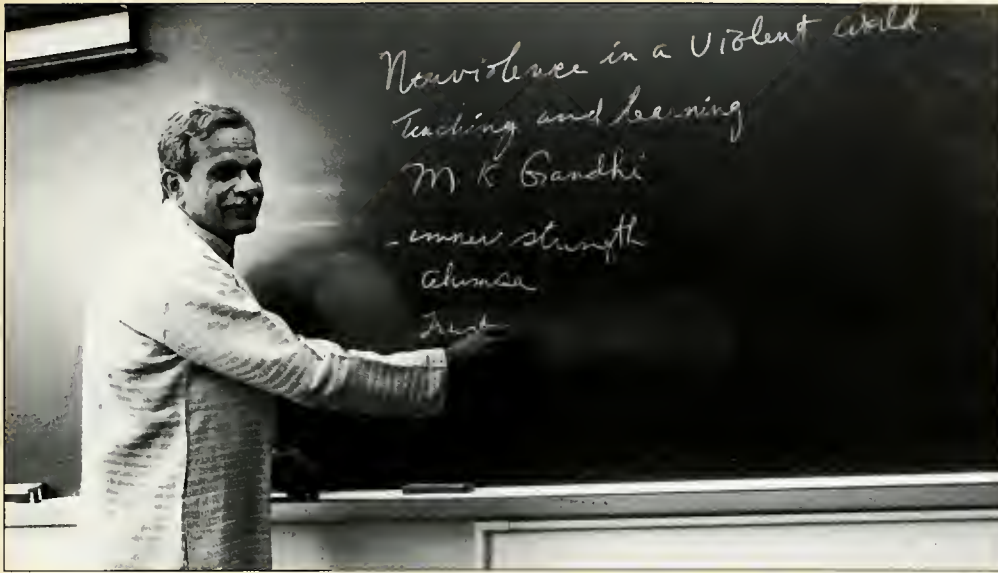 Nonviolence in a Violent world.
Teaching and learning
M. K Gandhi
- inner strength
ahimsa
Trust